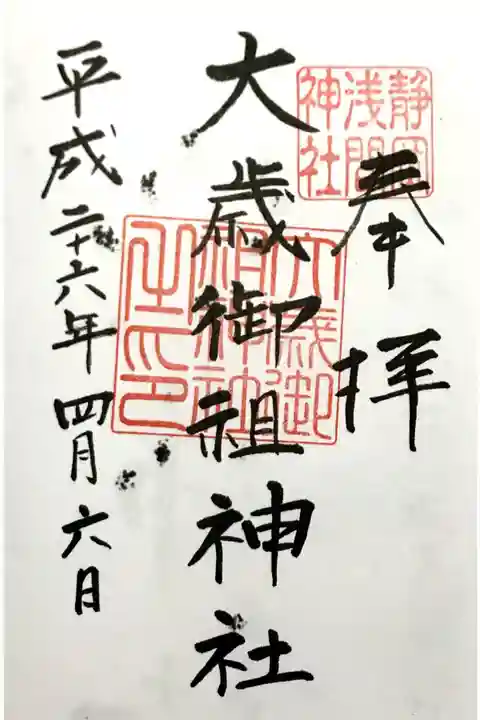 奉拝
静岡浅間神社
大歳御祖神社
大歳御祖神社之印
平成二十六年四月六日